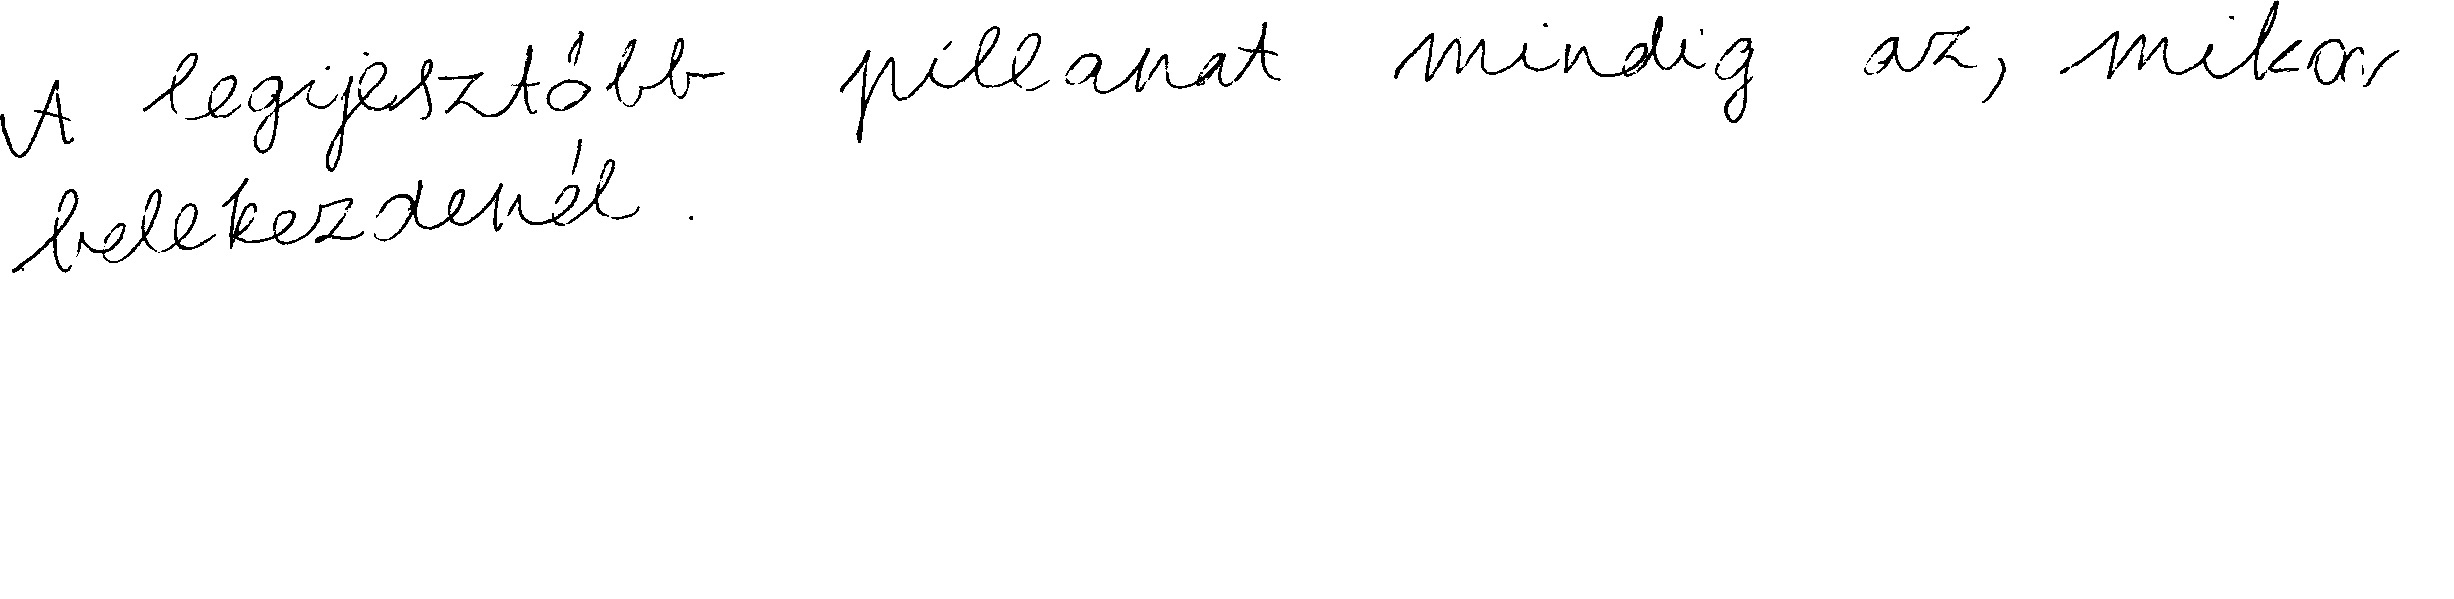 A legijesztőbb pillanat mindig az, mikor
belekezdenél.